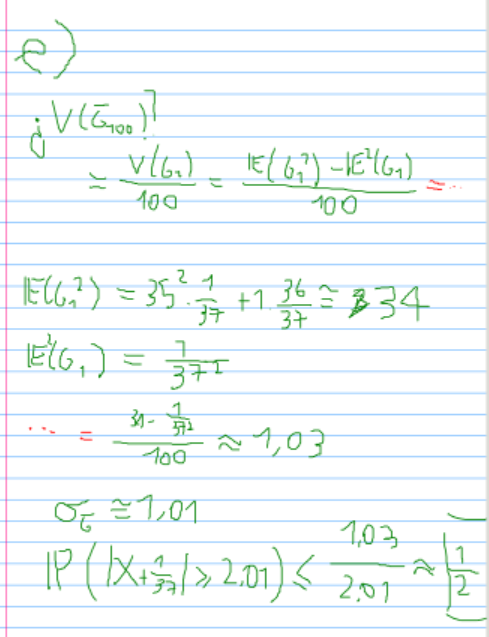 e)
¿V(Ḡ₁₀₀)?
= V(G₁)/100 = (𝔼(G₁²) - 𝔼²(G₁))/100 = ...
𝔼(G₁²) = 35² · 1/37 + 1 · 36/37 ≅ 34
𝔼²(G₁) = 1/37²
... = (34 - 1/37²)/100 ≈ 1,03
σ_Ḡ ≅ 1,01
ℙ(|X + 1/37| ⩾ 2,01) ≤ 1,03/2,01 ≈ 1/2